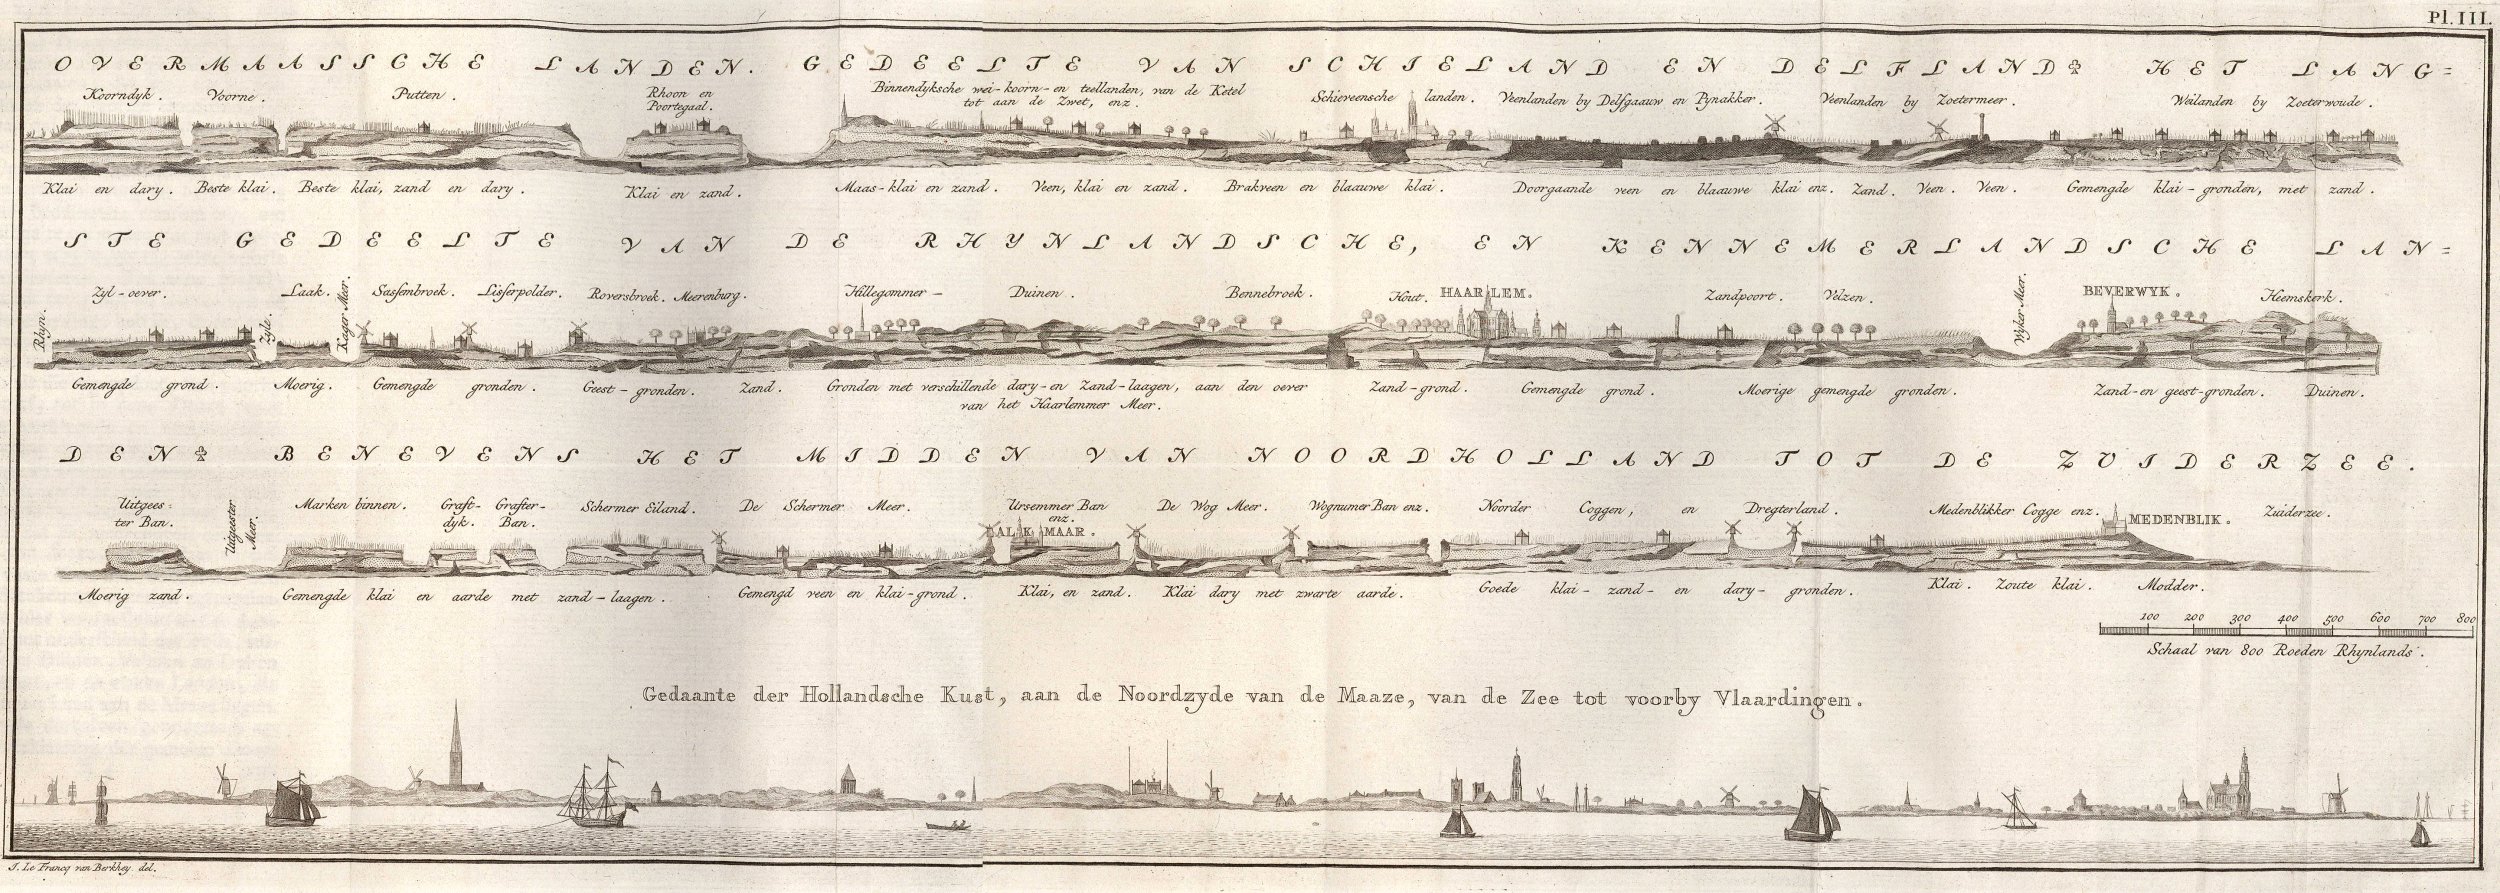 Pl. III.
OVERMAASSCHE LANDEN. GEDEELTE VAN SCHIELAND EN DELFLAND & HET LANG=
Koorndyk. Voorne. Putten. Rhoon en Poortegaal. Binnendyksche wei-koorn-en teellanden, van de Ketel tot aan de Zwet, enz. Schieveensche landen. Veenlanden by Delfgaauw en Pynakker. Veenlanden by Zoetermeer. Weilanden by Zoeterwoude.
Klai en dary. Beste klai. Beste klai, zand en dary. Klai en zand. Maas-klai en zand. Veen, klai en zand. Brakveen en blaauwe klai. Doorgaande veen en blaauwe klai enz. Zand. Veen. Veen. Gemengde klai-gronden, met zand.
STE GEDEELTE VAN DE RHYNLANDSCHE, EN KENNEMERLANDSCHE LAN=
Rhyn. Zyl-oever. Zyle. Laak. Kager Meer. Sassembroek. Lisserpolder. Roversbroek. Meerenburg. Hillegommer-Duinen. Bennebroek. Hout. HAARLEM. Zandpoort. Velzen. Wyker-Meer. BEVERWYK. Heemskerk.
Gemengde grond. Moerig. Gemengde gronden. Geest-gronden. Zand. Gronden met verschillende dary-en Zand-laagen, aan den oever van het Haarlemmer Meer. Zand-grond. Gemengde grond. Moerige gemengde gronden. Zand-en geest-gronden. Duinen.
DEN & BENEVENS HET MIDDEN VAN NOORDHOLLAND TOT DE ZUIDERZEE.
Uitgees=ter Ban. Uitgeester Meer. Marken binnen. Graft-dyk. Grafter-Ban. Schermer Eiland. De Schermer Meer. Ursemmer Ban enz. ALKMAAR. De Wog Meer. Wognumer Ban enz. Noorder Coggen, en Dregterland. Medenblikker Cogge enz. MEDENBLIK. Zuiderzee.
Moerig zand. Gemengde klai en aarde met zand-laagen. Gemengd veen en klai-grond. Klai, en zand. Klai dary met zwarte aarde. Goede klai-zand-en dary-gronden. Klai. Zoute klai. Modder.
100 200 300 400 500 600 700 800
Schaal van 800 Roeden Rhynlands.
Gedaante der Hollandsche Kust, aan de Noordzyde van de Maaze, van de Zee tot voorby Vlaardingen.
J. Le Francq van Berkhey del.